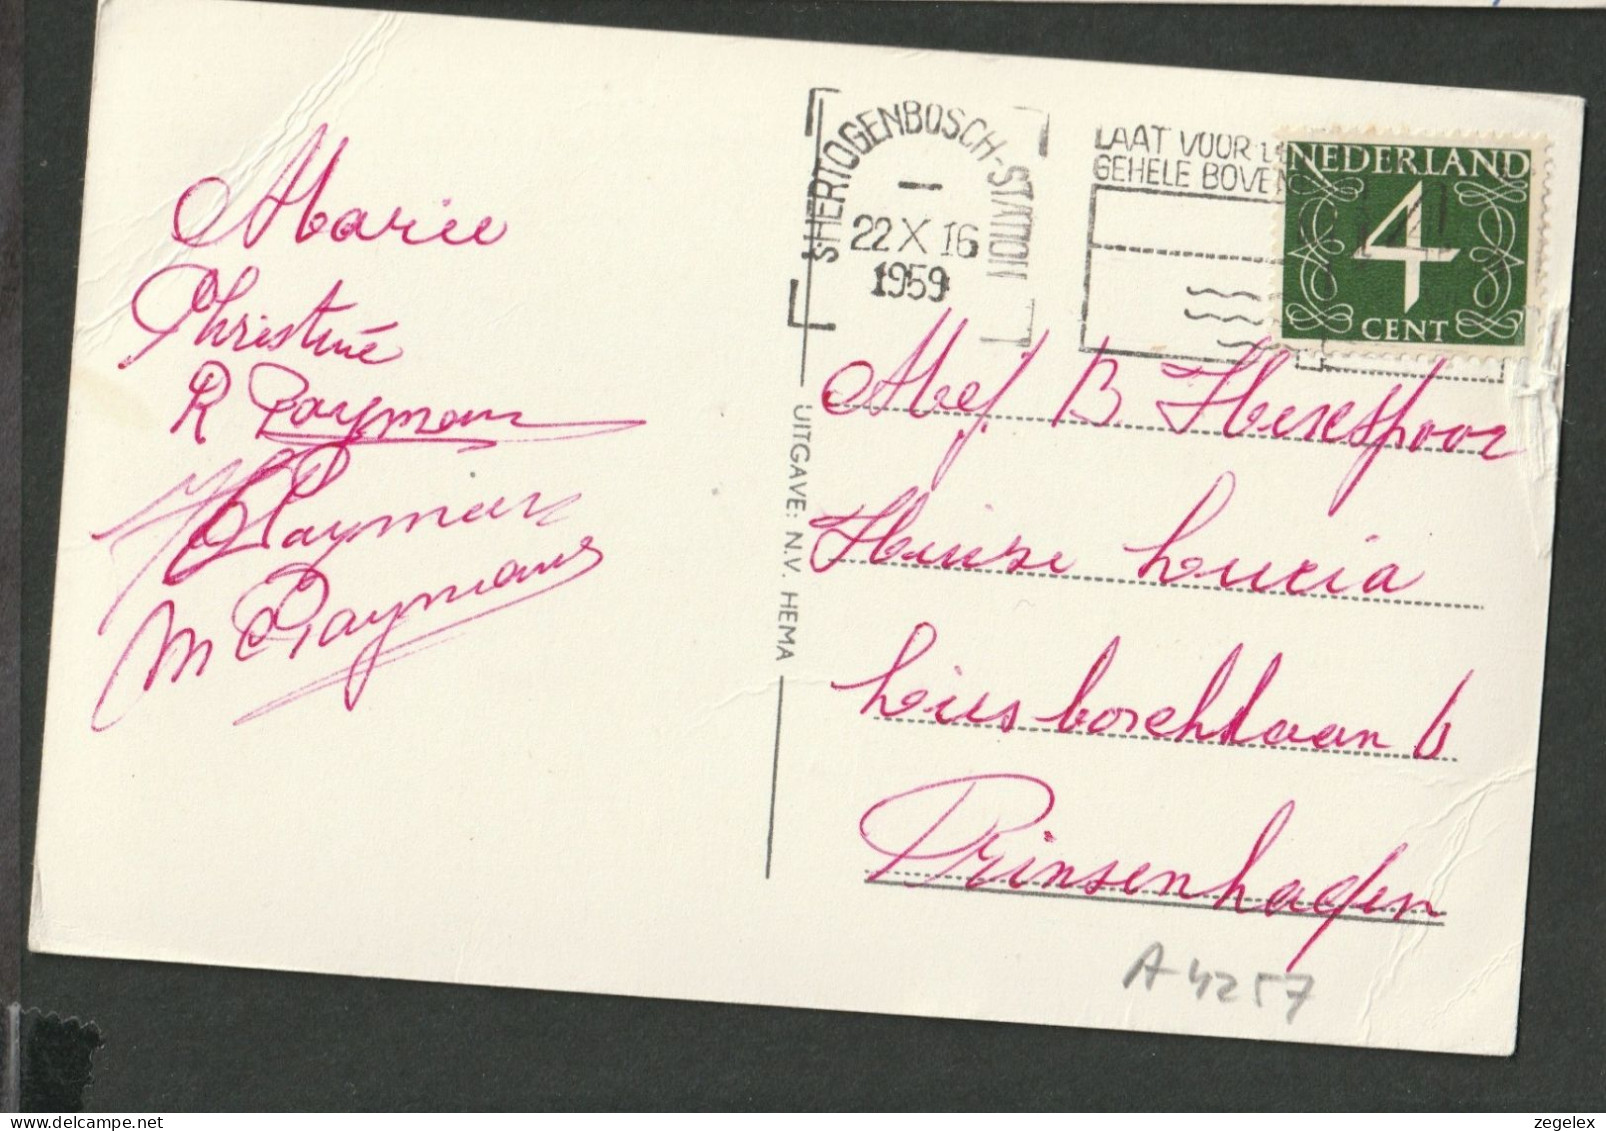 Marie
Christine
R Raymans
Raymans
M Raymans
'S-HERTOGENBOSCH-STATION
22 X 16
1959
LAAT VOOR
GEHELE BOVEN
NEDERLAND
4
CENT
UITGAVE: N.V. HEMA
Mej. B. Herespoor
Huize Lucia
Liesboschlaan 6
Prinsenhagen
A 4257
zegelex